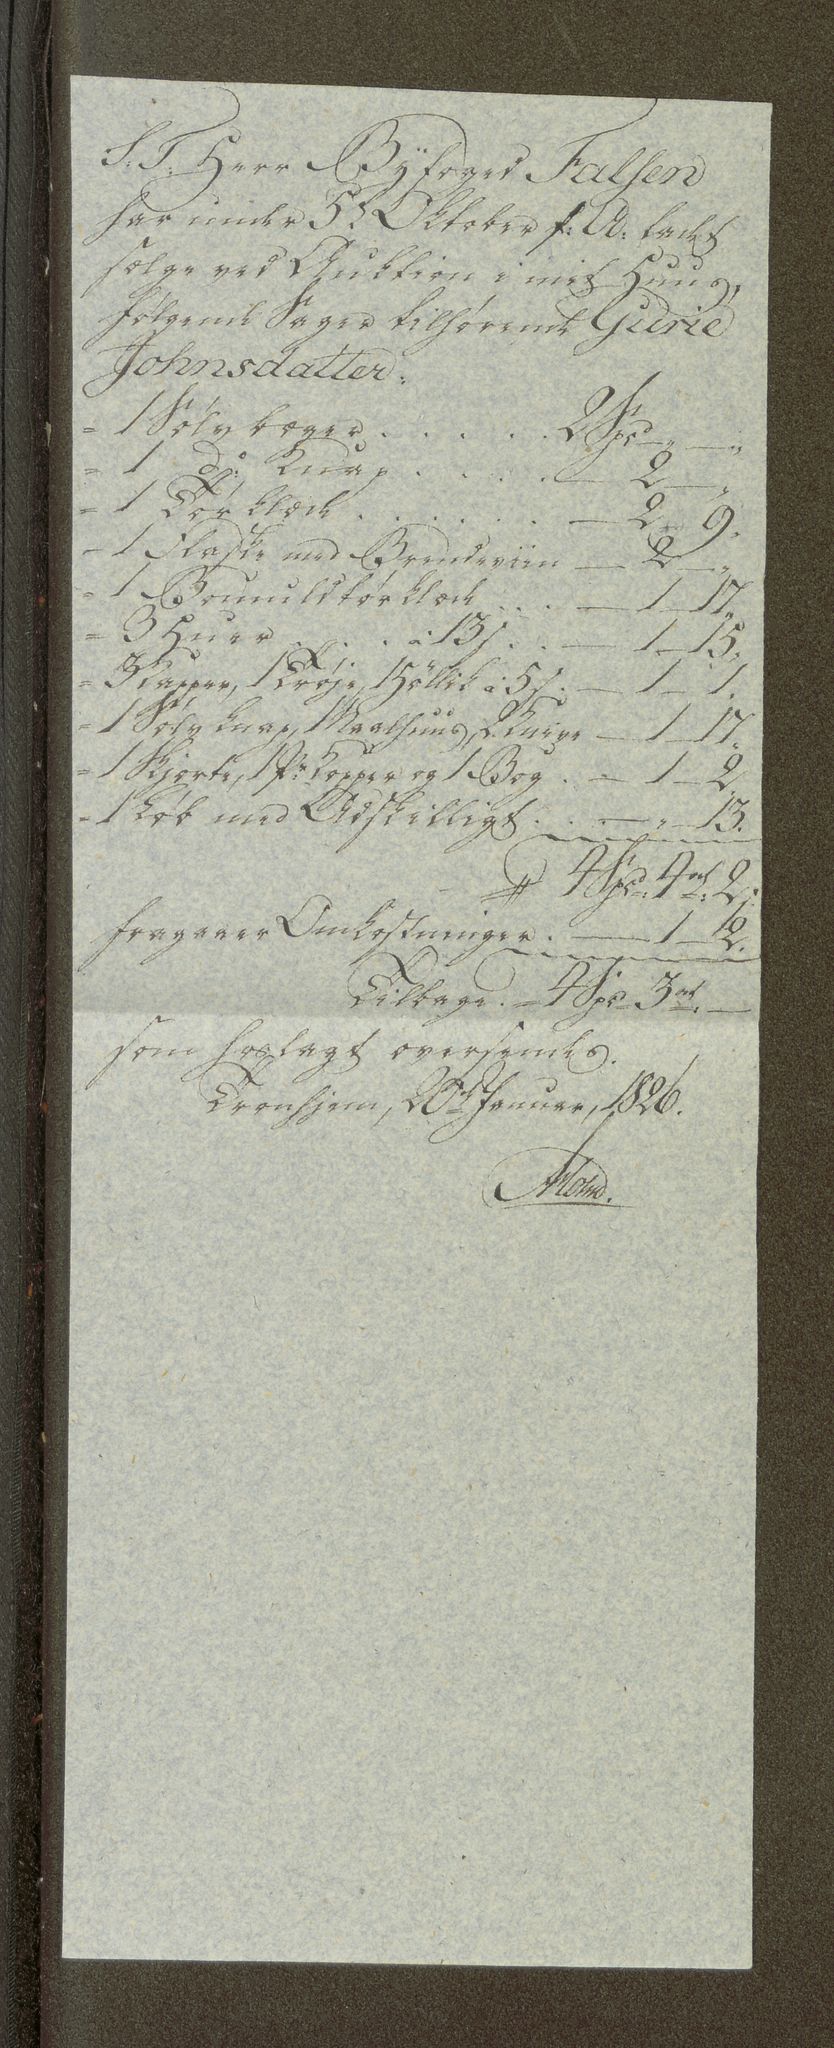 S. T. Herr Byfoged Falsen
har under 5t Oktober f: A: ladet
sælge ved Auktion i mit Huus,
følgende Sager tilhørende Gurie
Johnsdatter:
= 1 Sølvbæger . . . . . 2 Spd — „ — „
= 1 do Knap . . . . — 2 — „
= 1 Tørklæde . . . . . . — 2 „ 9.
= 1 Flaske med Brendeviin — 2 — „
= 1 Bomuldstørklæde . . . — 1 — 17.
= 3 Huer . . . . à 13 s . . — 1 — 15.
= 3 Kapper, 1 Trøje, 1 à 5 s . — 1 — 1.
= 1 Sølvknap, 1 Naalhuus, 2 Knive — 1 — 17.
= 1 Skjorte, 1 Pr Kopper og 1 Bog . — 1 — 2.
= 1 Løb med Adskilligt . . . — „ — 13.
4 Spd: 4 ort: 2 s
fragaaer Omkostninger . — 1 — 2.
Tilbage . = 4 Spd 3 ort. —
som hoslagt oversendes.
Tronhjem, 20de Januar, 1826.